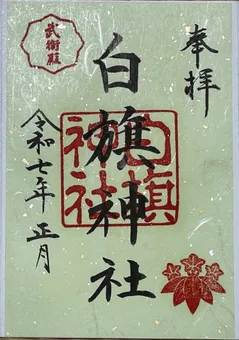 奉拝
白旗神社
令和七年 正月
武衛殿
白旗神社